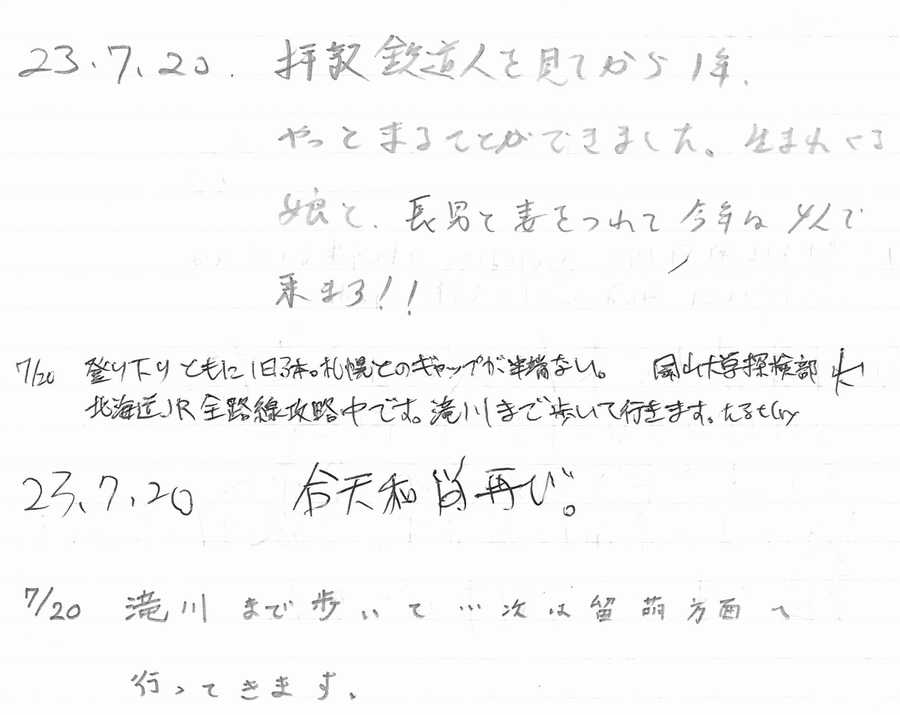 23.7.20. 拝啓 鉄道人を見てから1年、
やっと来ることができました。生まれくる
娘と、長男と妻をつれて今年は4人で
来ます!!
7/20 登り下りともに1日3本。札幌とのギャップが半端ない。 岡山大学探検部
北海道JR全路線攻略中です。滝川まで歩いて行きます。
23.7.20 再び。
7/20 滝川まで歩いて…次は留萌方面へ
行ってきます。